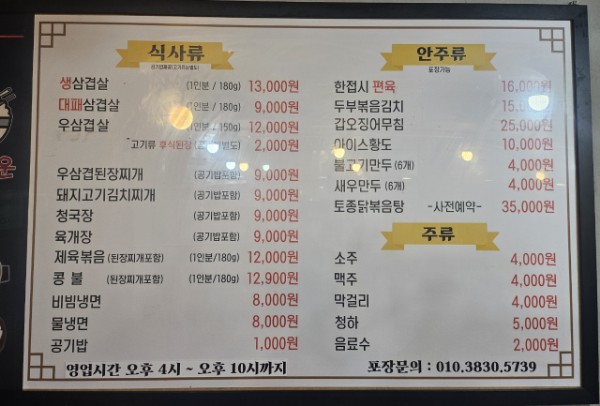 식사류
생삼겹살 (1인분 / 180g) 13,000원
대패삼겹살 (1인분 / 180g) 9,000원
우삼겹살 (1인분 / 150g) 12,000원
고기류 후식된장 2,000원
우삼겹된장찌개 (공기밥포함) 9,000원
돼지고기김치찌개 (공기밥포함) 9,000원
청국장 (공기밥포함) 9,000원
육개장 (공기밥포함) 9,000원
제육볶음 (된장찌개포함) (1인분/180g) 12,000원
콩 불 (된장찌개포함) (1인분/180g) 12,900원
비빔냉면 8,000원
물냉면 8,000원
공기밥 1,000원
영업시간 오후 4시 ~ 오후 10시까지
안주류
포장가능
한접시 편육 16,000원
두부볶음김치
갑오징어무침 25,000원
아이스황도 10,000원
불고기만두 (6개) 4,000원
새우만두 (6개) 4,000원
토종닭볶음탕 -사전예약- 35,000원
주류
소주 4,000원
맥주 4,000원
막걸리 4,000원
청하 5,000원
음료수 2,000원
포장문의 : 010.3830.5739